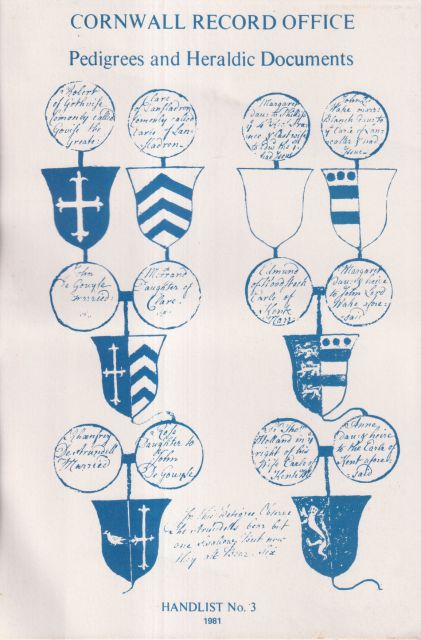 CORNWALL RECORD OFFICE
Pedigrees and Heraldic Documents
Robert
of
formerly called
Govise the
Greate
Clare
of Lansladron
formerly called
Earle of Lan-
sladron
Margaret
daur to Phillip
ye 4
& last wife
to Edw the 1
had Issue
John Ld
Wake mar
Blanch daur to
ye Earle of Lan-
caster & had
Issue
John
De Govyse
married
Daughter of
Clare
Edmund
of Woodstock
Earle of
Kent
Marr
Margaret
daur & heire
to John Lord
Wake afore
said
De Arundell
Married
Rose
Daughter to
John
De Govyse
Sr Tho
Holland in ye
right of his
Wife Earle of
Kent
Anne
daur & heire
to the Earle of
Kent afore
said
In this Petigree Observe
the Arundells bear but
one Swalow but now
they all Bear Six
HANDLIST No. 3
1981